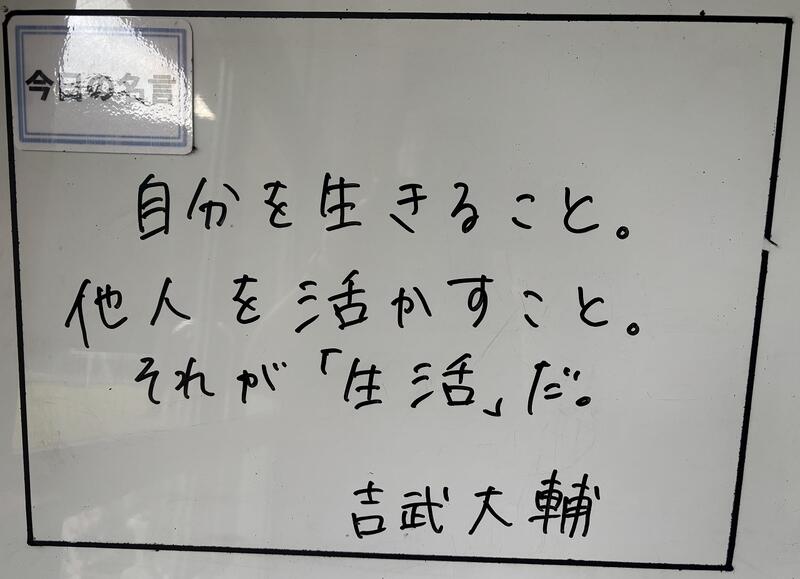 今日の名言
自分を生きること。
他人を活かすこと。
それが「生活」だ。
吉武大輔